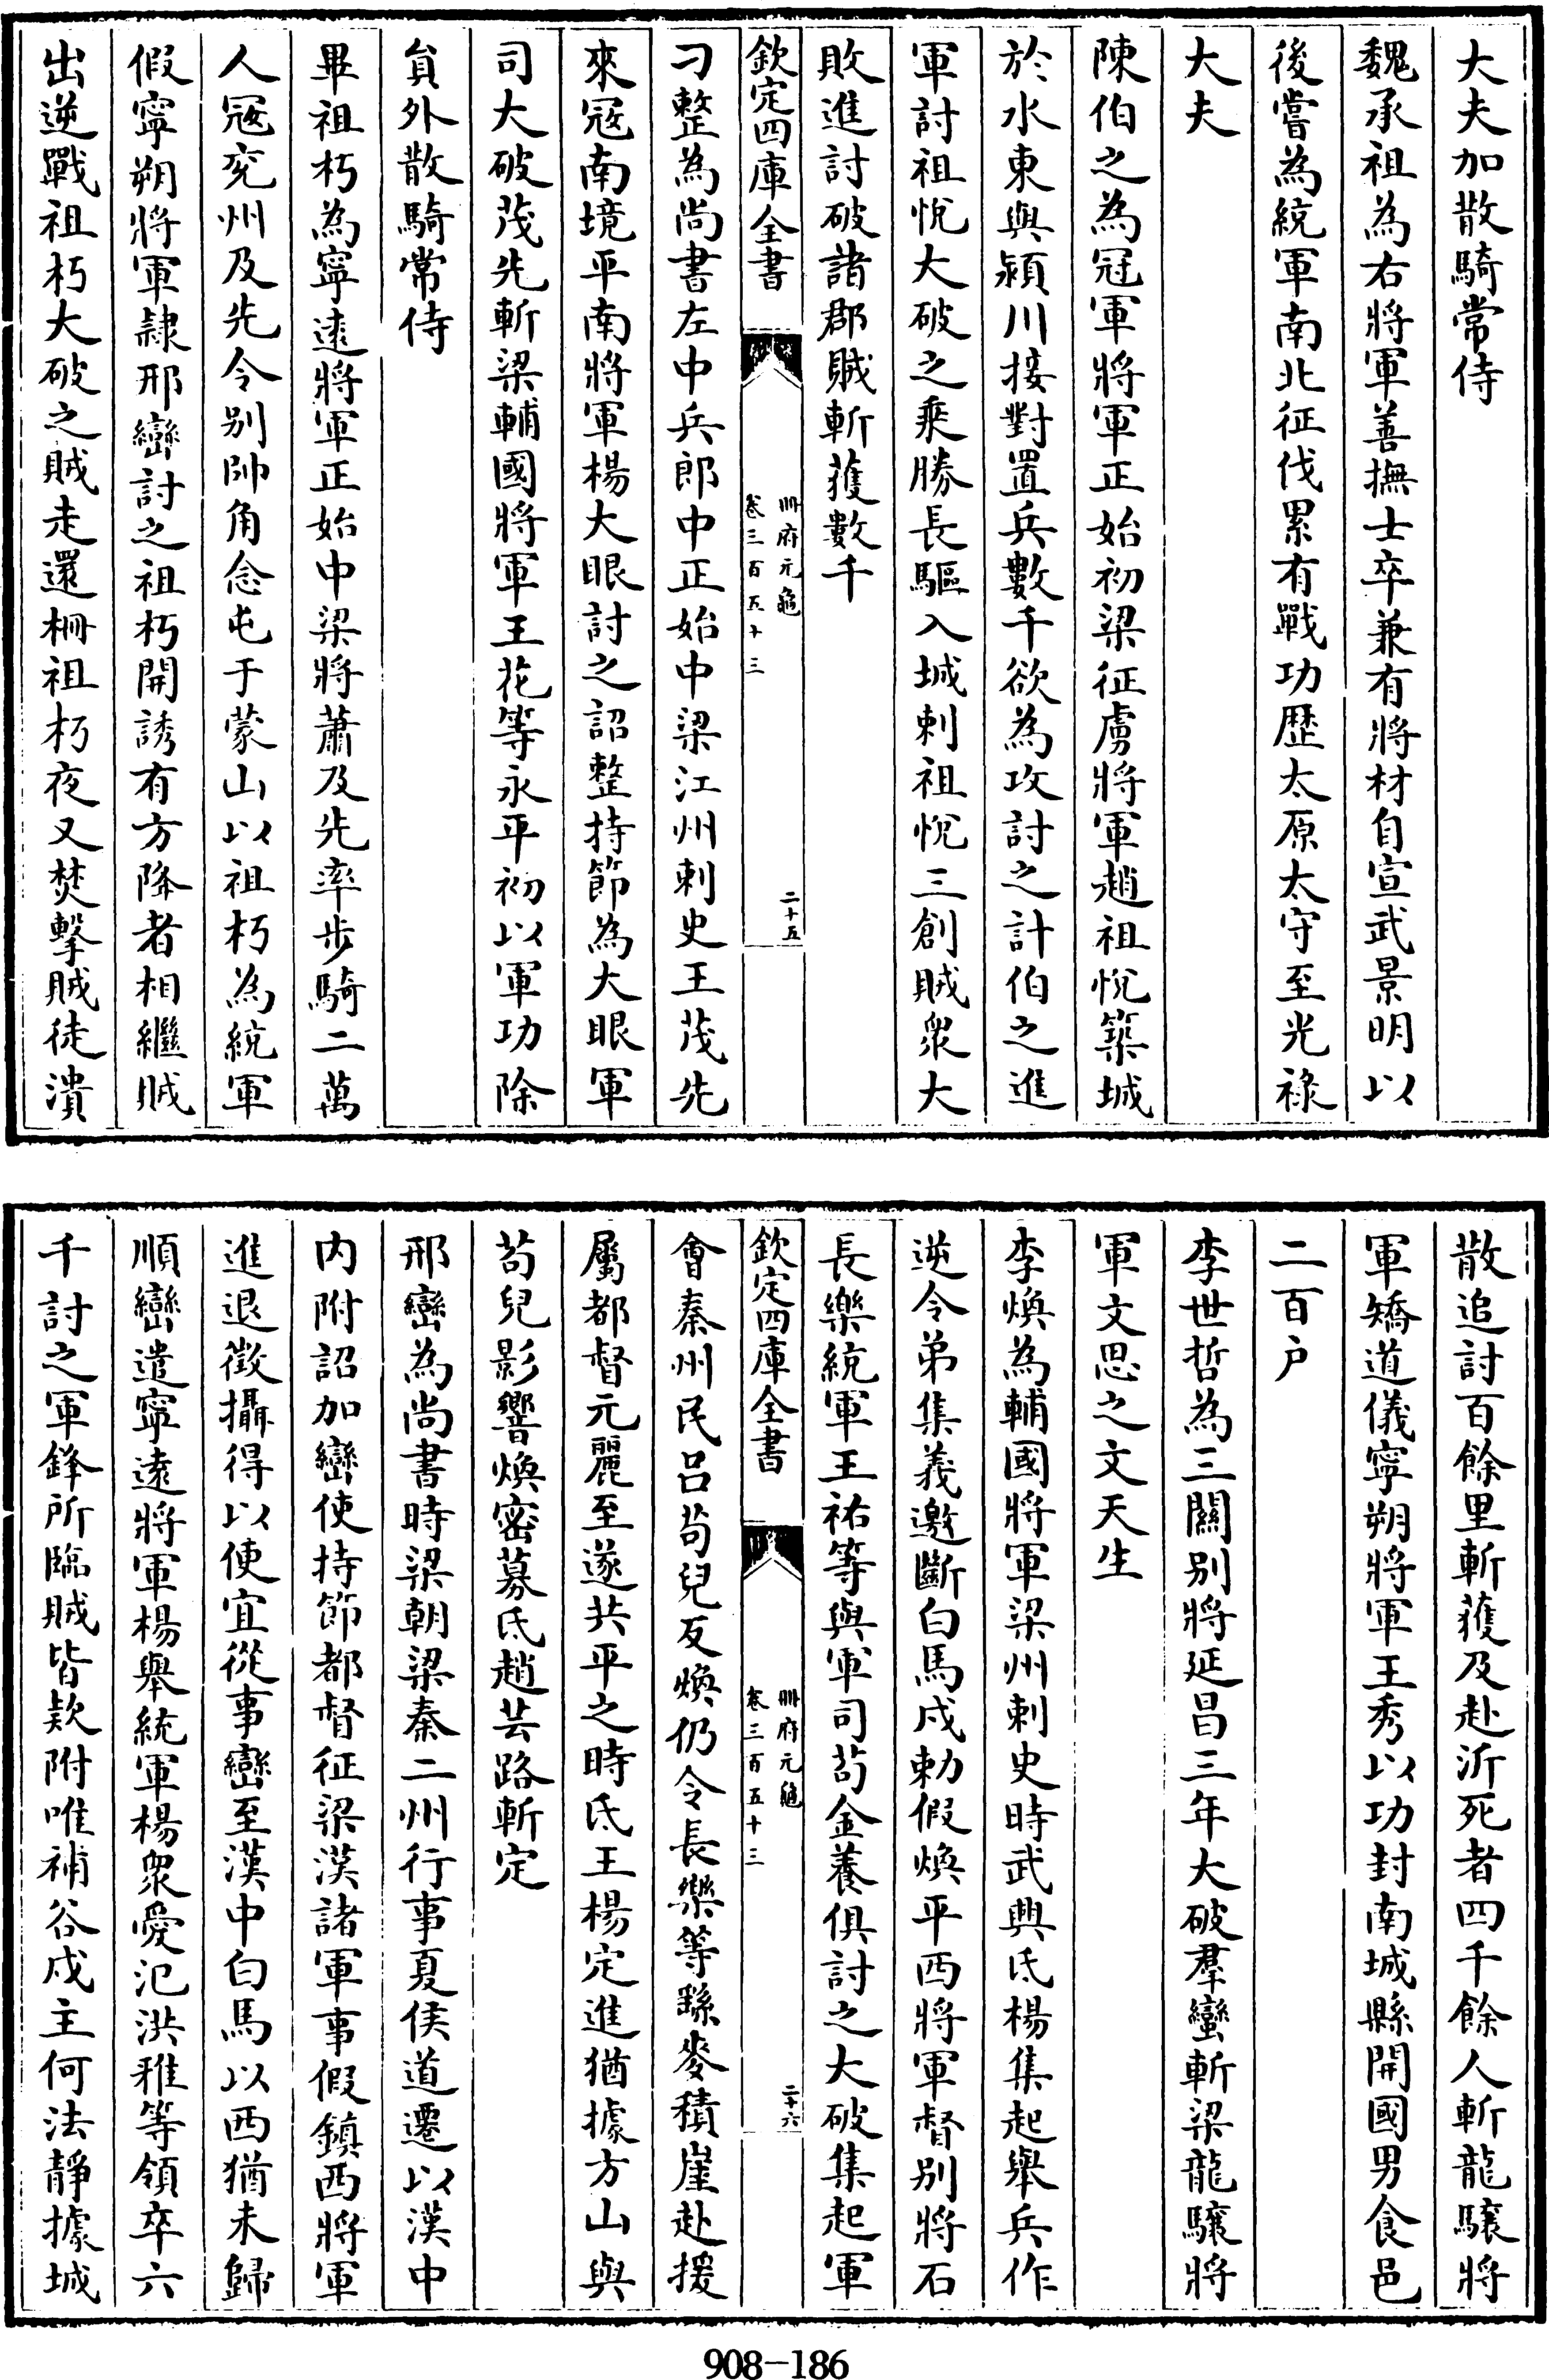 大夫加散騎常侍
魏承祖為右將軍善撫士卒兼有將材自宣武景明以
後嘗為統軍南北征伐累有戰功歴太原太守至光禄
大夫
陳伯之為冠軍將軍正始初梁征虜將軍趙祖悅築城
於水東與潁川接對置兵數千欲為攻討之計伯之進
軍討祖悅大破之乘勝長驅入城刺祖悅三創賊衆大
敗進討破諸郡賊斬獲數千
欽定四庫全書
冊府元龜
卷三百五十三
二十五
刁整為尚書左中兵郎中正始中梁江州刺史王茂先
來冦南境平南將軍楊大眼討之詔整持節為大眼軍
司大破茂先斬梁輔國將軍王花等永平初以軍功除
貟外散騎常侍
畢祖朽為寧遠將軍正始中梁將蕭及先率步騎二萬
人冦兖州及先令别帥角念屯于蒙山以祖朽為統軍
假寧朔將軍隷邢巒討之祖朽開誘有方降者相繼賊
出逆戰祖朽大破之賊走還柵祖朽夜又焚擊賊徒潰
散追討百餘里斬獲及赴沂死者四千餘人斬龍驤將
軍矯道儀寧朔將軍王秀以功封南城縣開國男食邑
二百户
李世哲為三關别將延昌三年大破羣蠻斬梁龍驤將
軍文思之文天生
李煥為輔國將軍梁州刺史時武興氐楊集起舉兵作
逆令弟集義邀斷白馬戍勅假煥平西將軍督别將石
長樂統軍王祐等與軍司茍金養俱討之大破集起軍
欽定四庫全書
冊府元龜
卷三百五十三
二十六
會秦州民呂茍兒反煥仍令長樂等繇麥積崖赴援
屬都督元麗至遂共平之時氐王楊定進猶據方山與
茍兒影響煥密募氐趙芸路斬定
邢巒為尚書時梁朝梁秦二州行事夏侯道遷以漢中
内附詔加巒使持節都督征梁漢諸軍事假鎮西將軍
進退徵攝得以便宜從事巒至漢中白馬以西猶未歸
順巒遣寧遠將軍楊舉統軍楊衆愛氾洪雅等領卒六
千討之軍鋒所臨賊皆款附唯補谷戍主何法靜據城
908-186